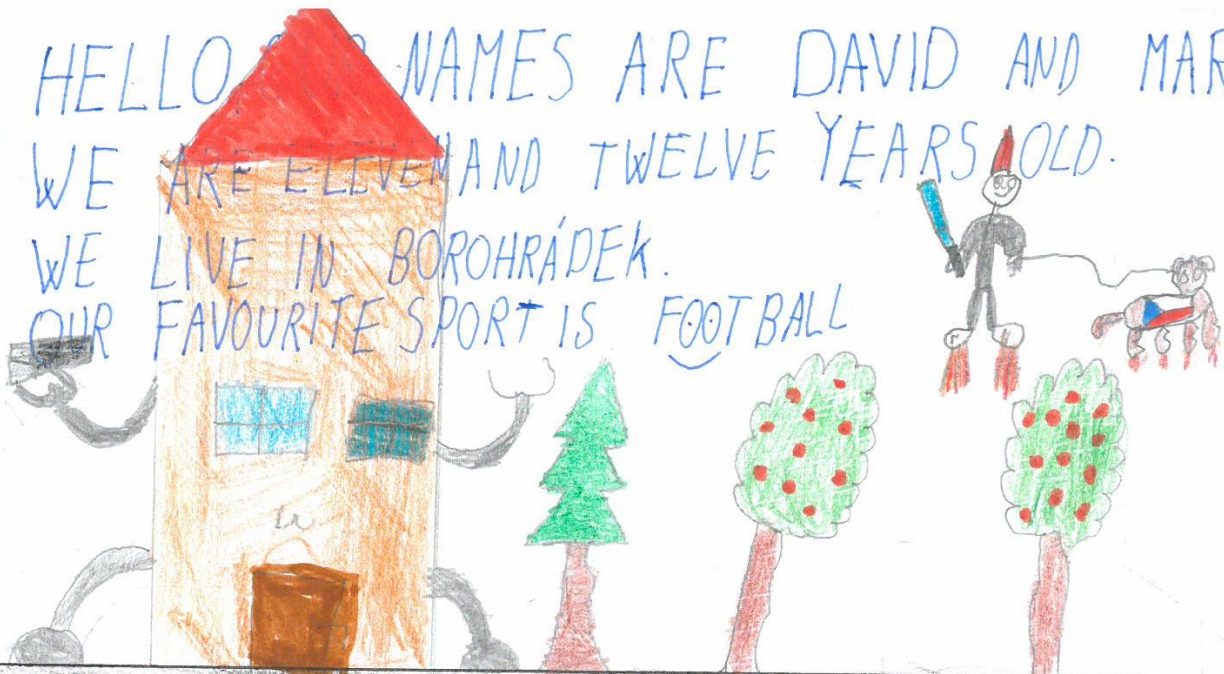 HELLO NAMES ARE DAVID AND MAR
WE ARE ELEVEN AND TWELVE YEARS OLD.
WE LIVE IN BOROHRÁDEK.
OUR FAVOURITE SPORT IS FOOTBALL